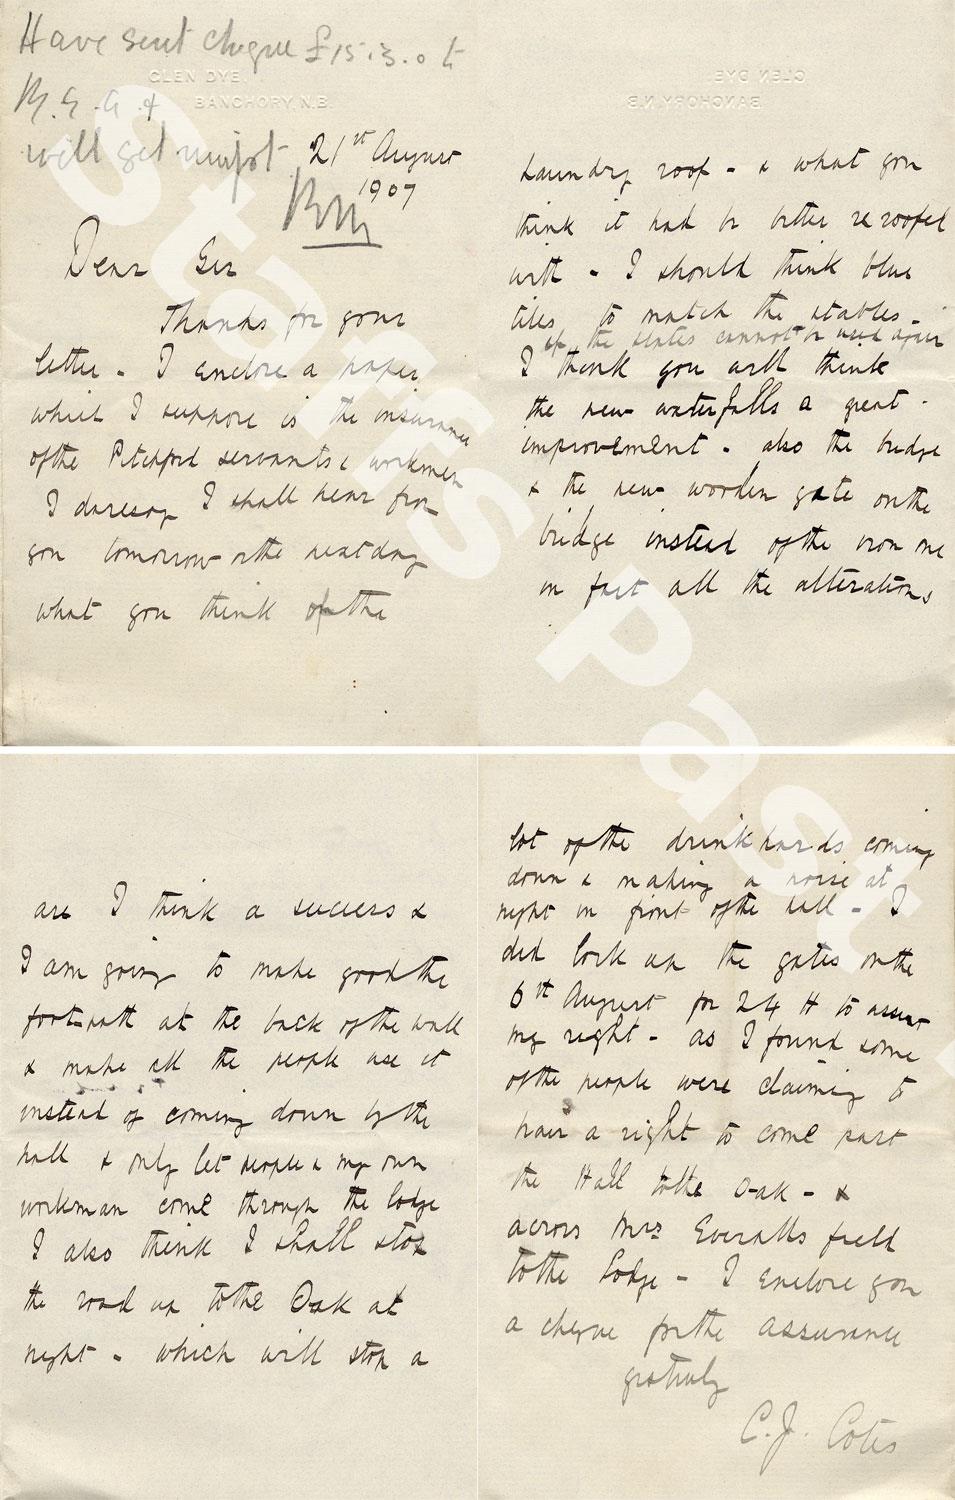 Have sent cheque £15.3.0 to
R.E.A. &
will get receipt
GLEN DYE.
BANCHORY, N.B.
21st August
1907
Dear Sir
Thanks for your
letter - I enclose a paper
which I suppose is the insurance
of the Pitchford servants & workmen
I daresay I shall hear from
you tomorrow or the next day
what you think of the
GLEN DYE
BANCHORY N.B.
Laundry roof - & what you
think it had be better reroofed
with - I should think blue
tiles to match the stables -
if the slates cannot be used again
I think you will think
the new waterfalls a great
improvement - also the bridge
& the new wooden gate on the
bridge instead of the iron one
in fact all the alterations
are I think a success &
I am going to make good the
footpath at the back of the wall
& make all the people use it
instead of coming down by the
hall & only let people & my own
workman come through the lodge
I also think I shall stop
the road up to the Oak at
night - which will stop a
lot of the drunkards coming
down & making a noise at
night in front of the hall - I
did lock up the gates on the
6th August for 24 H to assert
my right - as I found some
of the people were claiming to
have a right to come past
the Hall to the Oak - &
across Mrs Everalls field
to the Lodge - I enclose you
a cheque for the assurance
yrs truly
C.J. Cotes
Staffs Past